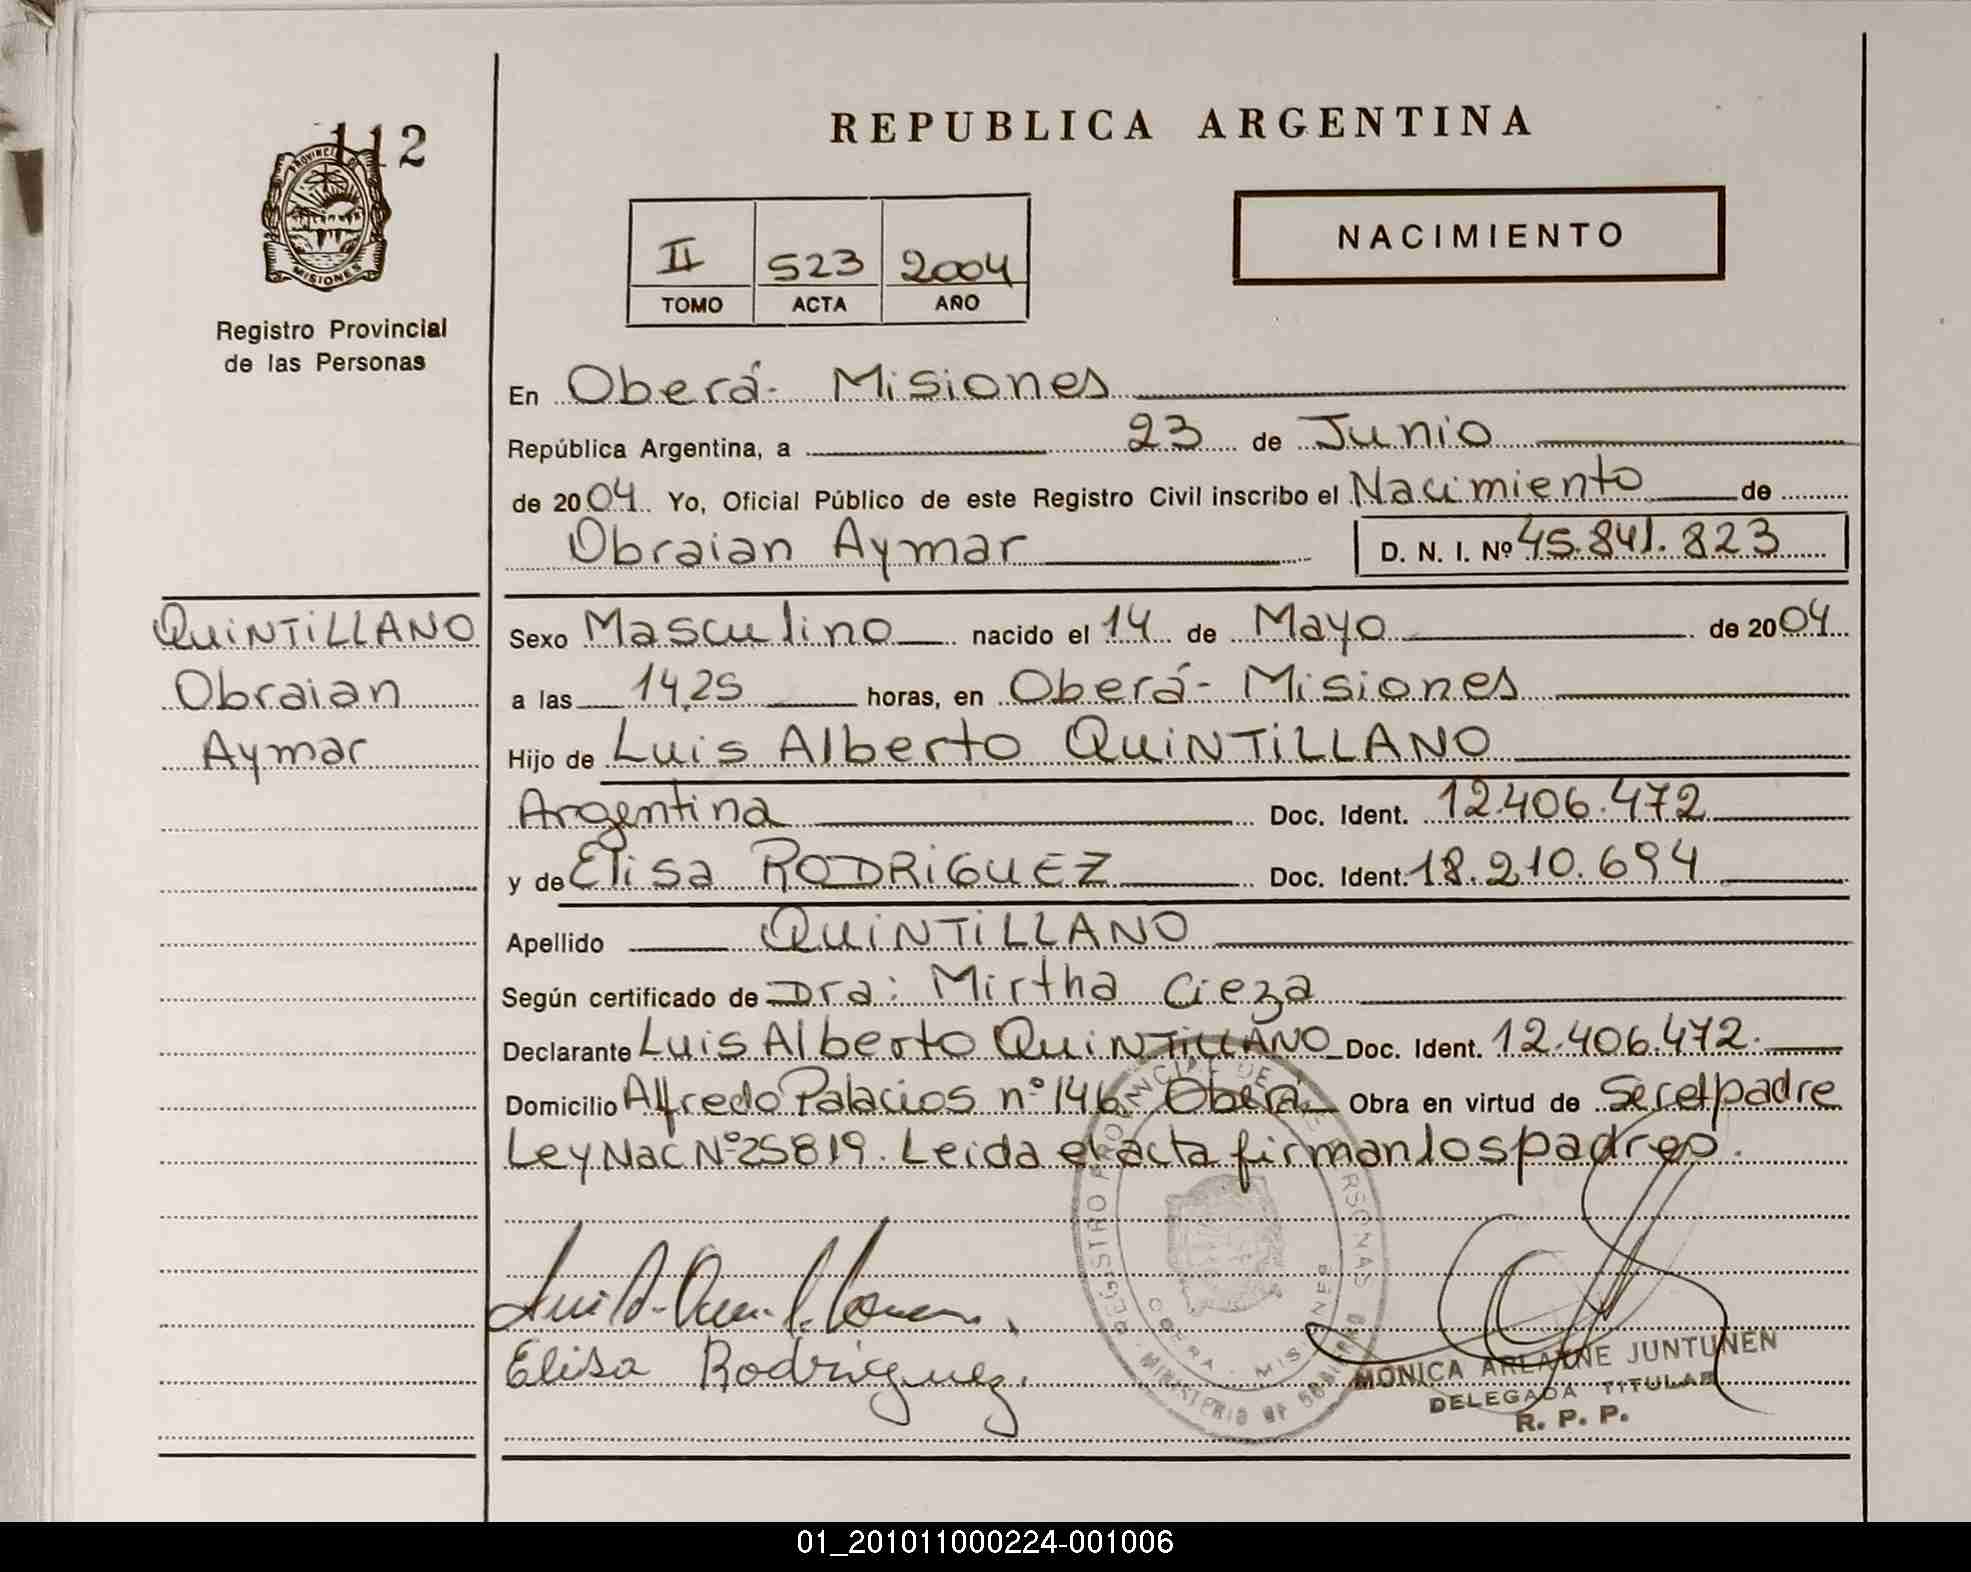 112
PROVINCIA DE
MISIONES
Registro Provincial
de las Personas
REPUBLICA ARGENTINA
NACIMIENTO
II 523 2004
TOMO ACTA AÑO
En Oberá - Misiones
República Argentina, a 23 de Junio
de 2004 Yo, Oficial Público de este Registro Civil inscribo el Nacimiento de
Obraian Aymar D. N. I. Nº 45.841.823
QUINTILLANO
Obraian
Aymar
Sexo Masculino nacido el 14 de Mayo de 2004
a las 14,25 horas, en Oberá - Misiones
Hijo de Luis Alberto QUINTILLANO
Argentina Doc. Ident. 12.406.472
y de Elisa RODRIGUEZ Doc. Ident. 18.210.694
Apellido QUINTILLANO
Según certificado de Dra: Mirtha Cieza
Declarante Luis Alberto QUINTILLANO Doc. Ident. 12.406.472.
Domicilio Alfredo Palacios nº 146 - Oberá Obra en virtud de Ser el padre
Ley Nac Nº 25819. Leida el acta firman los padres.
Elisa Rodriguez.
MONICA ARLAINE JUNTUNEN
DELEGADA TITULAR
R. P. P.
01_201011000224-001006